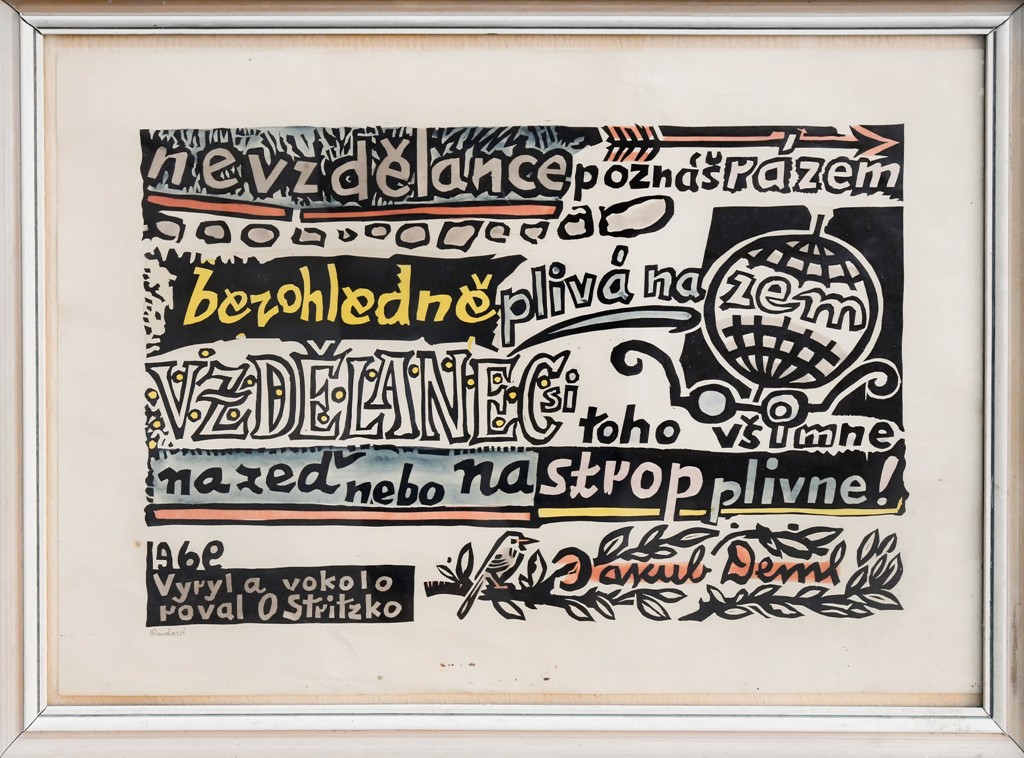 nevzdělance poznáš rázem
bezohledně plivá na zem
VZDĚLANEC si toho všimne
na zeď nebo na strop plivne!
1969
Vyryl a vokolo
roval O Stritzko
Jakub Deml